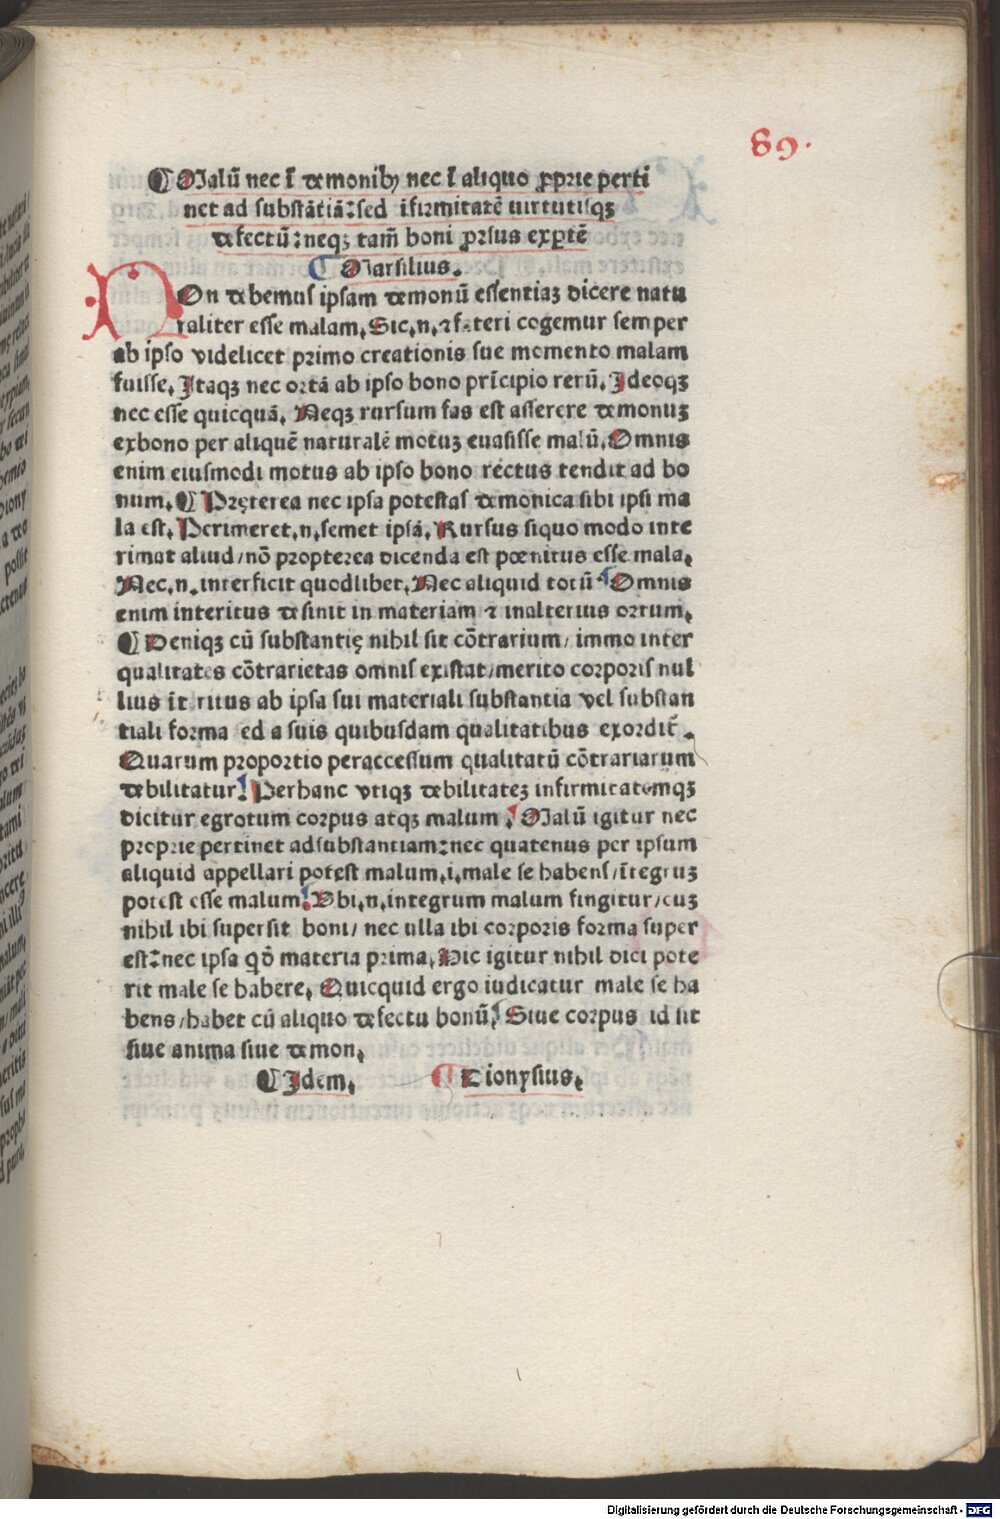 89.
¶ Malū nec ī demonibꝫ nec ī aliquo ꝓprie perti
net ad substātiā: sed īfirmitatē uirtutisqꝫ
defectū: neqꝫ tam̄ boni ꝓrsus exꝑtē
¶ Marsilius.
NOn debemus ipsam demonū essentiaꝫ dicere natu
raliter esse malam. Sic .n. ⁊ fateri cogemur semper
ab ipso videlicet primo creationis sue momento malam
fuisse. Itaqꝫ nec ortā ab ipso bono prīcipio rerū. Ideoqꝫ
nec esse quicquā. Neqꝫ rursum fas est asserere demonuꝫ
exbono per aliquē naturalē motuꝫ euasisse malū. Omnis
enim eiusmodi motus ab ipso bono rectus tendit ad bo
num. ¶ Pręterea nec ipsa potestas demonica sibi ipsi ma
la est. Perimeret .n. semet ipsā. Rursus siquo modo inte
rimat aliud / nō propterea dicenda est pœnitus esse mala.
Nec .n. interficit quodlibet. Nec aliquid totū. Omnis
enim interitus desinit in materiam ⁊ inalterius ortum.
¶ Deniqꝫ cū substantię nihil sit cōtrarium / immo inter
qualitates cōtrarietas omnis existat / merito corporis nul
lius īt ritus ab ipsa sui materiali substantia vel substan
tiali forma ed a suis quibusdam qualitatibus exordit̄ .
Quarum proportio peraccessum qualitatū cōtrariarum
debilitatur. Perhanc vtiqꝫ debilitateꝫ infirmitatemqꝫ
dicitur egrotum corpus atqꝫ malum . Malū igitur nec
proprie pertinet adsubstantiam: nec quatenus per ipsum
aliquid appellari potest malum .i. male se habens / ītegruꝫ
potest esse malum. Vbi .n. integrum malum fingitur / cuꝫ
nihil ibi supersit boni / nec ulla ibi corporis forma super
est: nec ipsa qō materia prima. Hic igitur nihil dici pote
rit male se habere. Quicquid ergo iudicatur male se ha
bens / habet cū aliquo defectu bonū. Siue corpus id sit
siue anima siue demon.
¶ Idem. ¶ Dionysius.
Digitalisierung gefördert durch die Deutsche Forschungsgemeinschaft - DFG